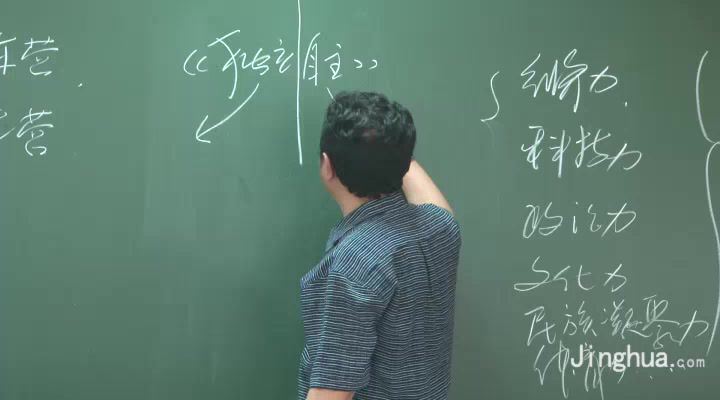 营
营
《独立自主》
经济力
科技力
政治力
文化力
民族凝聚力
Jinghua.com